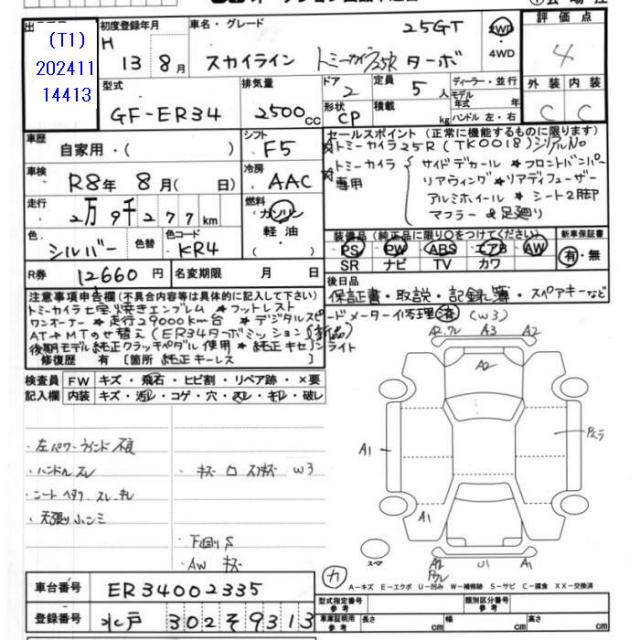 (T1)
202411
14413
初度登録年月
H
13 8月
車名・グレード
スカイライン
25GT
トミーカイラ25R ターボ
2WD
・
4WD
評価点
4
型式
GF-ER34
排気量
2500cc
ドア
2
定員
5人
形状
CP
積載
kg
ディーラー・並行
モデル
年式 年
ハンドル 左・右
外装 内装
C C
車歴
自家用・( )
シフト
F5
車検
R8年 8月( 日)
冷房
AAC
走行
2万9千277km
燃料
ガソリン
軽油
( )
色
シルバー
色替
色コード
KR4
R券
12660円
名変期限 月 日
セールスポイント(正常に機能するものに限ります)
☆トミーカイラ25R(TK0018)シリアルNo
☆トミーカイラ専用
サイドデカール*フロントバンパー
リアウィング*リアディフューザー
アルミホイール*シート2脚
マフラー & 足廻り
装備品(純正品に限り○をつけてください)
PS PW ABS エアB AW
SR ナビ TV カワ
新車保証書
有・無
後日品
保証書・取説・記録簿・スペアキーなど
注意事項申告欄(不具合内容等は具体的に記入して下さい)
トミーカイラ七宝焼きエンブレム * フットレスト
ワンオーナー * 走行29000km台 * デジタルスピードメーター修理済(W3)
AT→MTのせ替え(ER34ターボミッション(新品)
後期モデル純正クラッチペダル使用 * 純正キセノンライト
修復歴 有 [箇所 純正キーレス ]
検査員
記入欄
FW キズ・飛石・ヒビ割・リペア跡・×要
内装 キズ・汚レ・コゲ・穴・スレ・キレ・破レ
・左パワーウインド不良
・ハンドルスレ
・シートヘタリ スレ キレ
・天張りハンミ
・下回りS
・AW キズ
A2 ワレ A3 A2
A2
A1
A1
A1
U1
A2
スペア
カ
A-キズ E-エクボ U-凹み W-補修跡 S-サビ C-腐食 XX-交換済
車台番号
ER34002335
登録番号
水戸 302 そ 9313
型式指定番号
参考
類別区分番号
参考
車庫証明用
参考
長さ cm
幅 cm
高さ cm